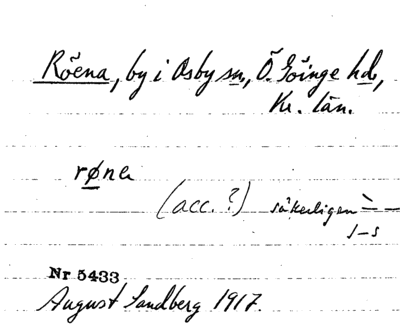 Röena, by i Osby sn, Ö. Göinge hd,
Kr. län.
røna
(acc.?) säkerligen `- -
1-s
Nr 5433
August Sandberg 1917.